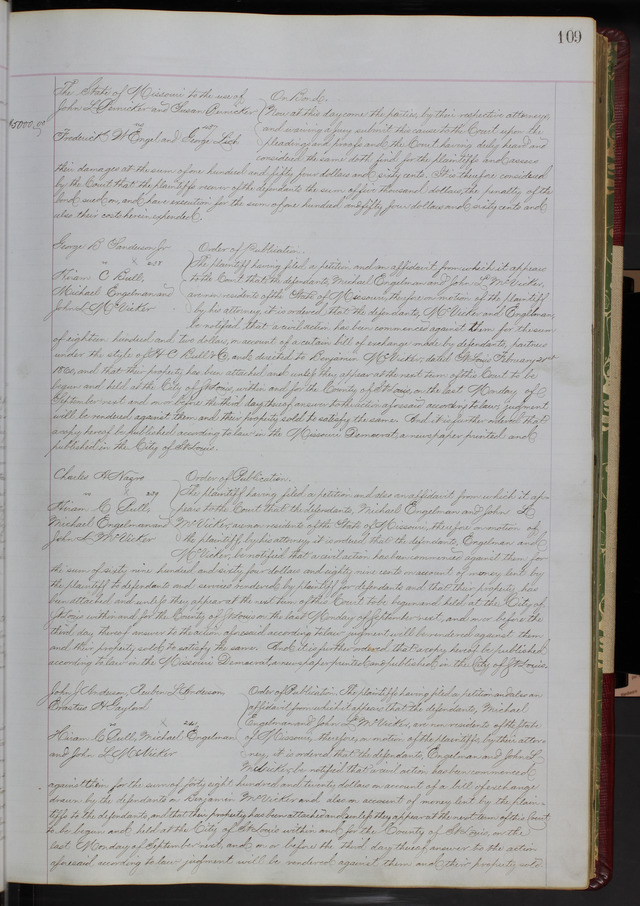 109
The State of Missouri to the use of
John L. Rennicker and Susan Rennicker
$5000.00
vs
Frederick W Engel and George Lisch
On Bond.
Now at this day come the parties, by their respective attorneys
and waiving a jury submit this cause to the Court upon the
pleadings and proofs and the Court having duly heard and
considered the same doth find for the plaintiffs and assess
their damages at the sum of one hundred and fifty four dollars and sixty cents. It is therefore considered
by the Court that the plaintiffs recover of the defendants the sum of five thousand dollars, the penalty of the
bond sued on, and have execution for the sum of one hundred and fifty four dollars and sixty cents and
also their costs herein expended.
George B Sanderson Jr
vs 238
Hiram C Bull,
Michael Engelman and
John L McVicker
Order of Publication.
The plaintiff having filed a petition and an affidavit from which it appears
to the Court that the defendants, Michael Engelman and John L McVicker,
are non residents of the State of Missouri, therefore on motion of the plaintiff
by his attorney it is ordered that the defendants, McVicker and Engelman,
be notified that a civil action has been commenced against them for the sum
of eighteen hundred and two dollars, on account of a certain bill of exchange made by defendants, partners
under the style of H C Bull & Co and directed to Benjamin McVicker, dated St Louis February 21st
1860, and that their property has been attached and unless they appear at the next term of this Court to be
begun and held at the City of St Louis, within and for the County of St Louis, on the last Monday of
September next and on or before the third day thereof answer to the action aforesaid according to law, judgment
will be rendered against them and their property sold to satisfy the same. And it is further ordered that
a copy hereof be published according to law in the Missouri Democrat, a newspaper printed and
published in the City of St Louis.
Charles H Nayro
vs 239
Hiram C Bull,
Michael Engelman and
John L McVicker
Order of Publication.
The plaintiff having filed a petition and also an affidavit from which it ap-
pears to the Court that the defendants, Michael Engelman and John L
McVicker, are non residents of the State of Missouri, therefore on motion of
the plaintiff by his attorney it is ordered that the defendants, Engelman and
McVicker, be notified that a civil action has been commenced against them for
the sum of sixty nine hundred and sixty four dollars and eighty nine cents on account of money lent by
the plaintiff to defendants and services rendered by plaintiff for defendants and that their property has
been attached and unless they appear at the next term of this Court to be begun and held at the City of
St Louis within and for the County of St Louis on the last Monday of September next, and on or before the
third day thereof answer to the action aforesaid according to law judgment will be rendered against them
and their property sold to satisfy the same. And it is further ordered that a copy hereof be published
according to law in the Missouri Democrat, a newspaper printed and published in the City of St Louis.
John J Anderson, Reuben L Anderson
Erastus H Gaylord
vs 240
Hiram C Bull, Michael Engelman
and John L McVicker
Order of Publication. The plaintiffs having filed a petition and also an
affidavit from which it appears that the defendants, Michael
Engelman and John L McVicker, are non residents of the State
of Missouri, therefore, on motion of the plaintiffs, by their attor-
ney, it is ordered that the defendants, Engelman and John L
McVicker, be notified that a civil action has been commenced
against them for the sum of forty eight hundred and twenty dollars on account of a bill of exchange
drawn by the defendants on Benjamin McVicker and also on account of money lent by the plain-
tiffs to the defendants, and that their property has been attached and unless they appear at the next term of this Court
to be begun and held at the City of St Louis within and for the County of St Louis, on the
last Monday of September next, and on or before the third day thereof answer to the action
aforesaid according to law judgment will be rendered against them and their property sold